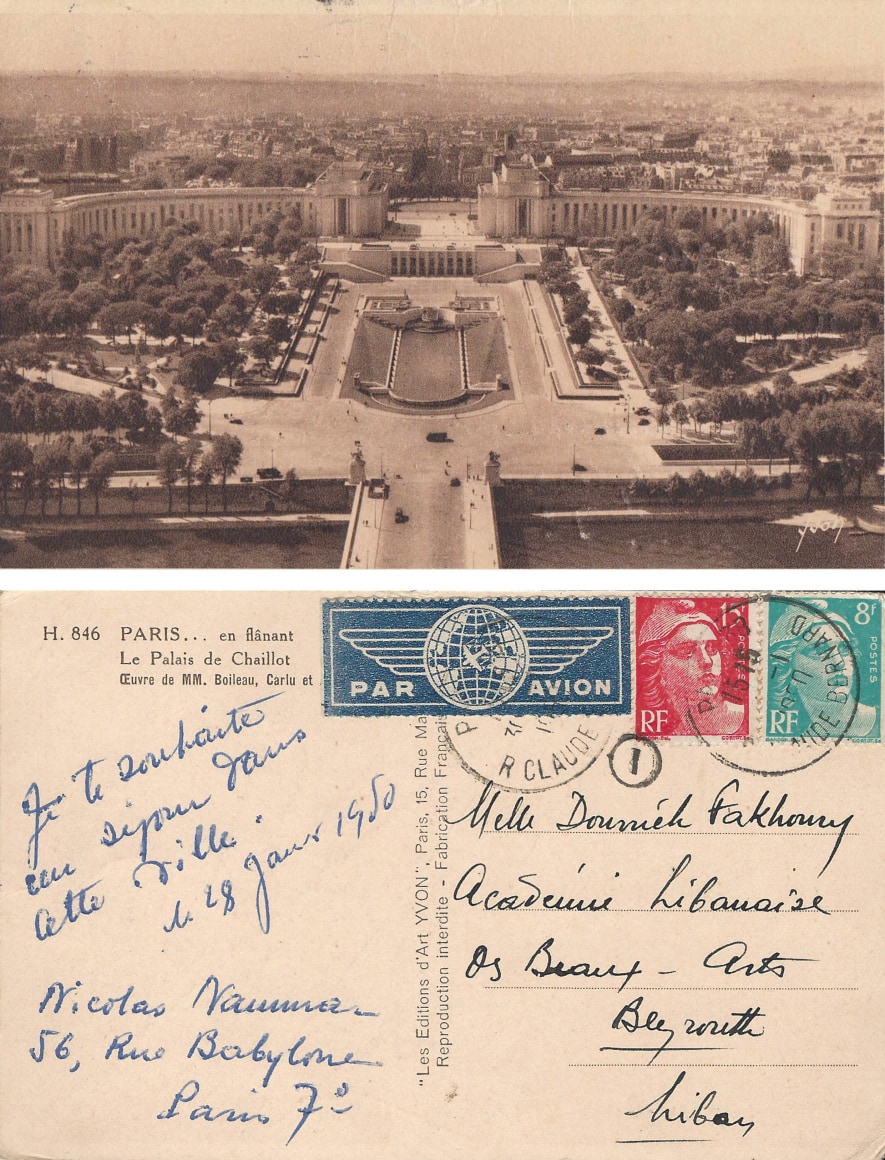 Yvon
H. 846 PARIS... en flânant
Le Palais de Chaillot
Œuvre de MM. Boileau, Carlu et
PAR AVION
15f
POSTES
RF
8f
POSTES
RF
R CLAUDE
15 H
CLAUDE BERNARD
1
Je te souhaite
un séjour dans
cette ville.
le 28 Janv 1950
Nicolas Nammar
56, Rue Babylone
Paris 7e
"Les Editions d'Art YVON", Paris, 15, Rue Ma
Reproduction interdite - Fabrication Français
Melle Fakhoury
Académie Libanaise
Ds Beaux-Arts
Beyrouth
Liban